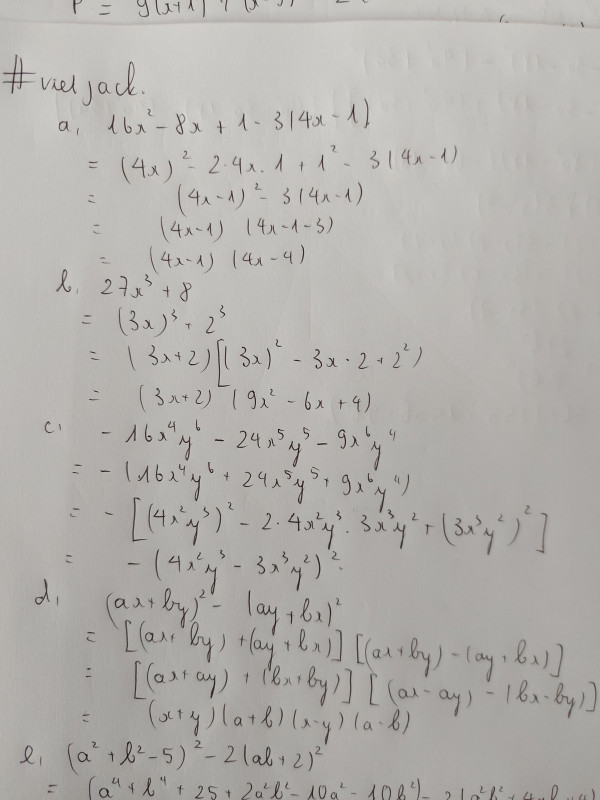 P = 9(x+1)
# vietjack.
a, 16x² - 8x + 1 - 3(4x - 1)
= (4x)² - 2·4x.1 + 1² - 3(4x-1)
= (4x-1)² - 3(4x-1)
= (4x-1) (4x-1-3)
= (4x-1) (4x-4)
b, 27x³ + 8
= (3x)³ + 2³
= (3x+2)[(3x)² - 3x·2 + 2²)
= (3x+2) (9x² - 6x + 4)
c, - 16x⁴y⁶ - 24x⁵y⁵ - 9x⁶y⁴
= - (16x⁴y⁶ + 24x⁵y⁵ + 9x⁶y⁴)
= - [(4x²y³)² - 2·4x²y³.3x³y² + (3x³y²)²]
= - (4x²y³ - 3x³y²)².
d, (ax+by)² - (ay+bx)²
= [(ax+by)+(ay+bx)] [(ax+by)-(ay+bx)]
= [(ax+ay) + (bx+by)] [(ax-ay) - (bx-by)]
= (x+y)(a+b)(x-y)(a-b)
e, (a²+b²-5)² - 2(ab+2)²
= (a⁴+b⁴+25+2a²b²-10a²-10b²)-2(a²b²+4ab+4)